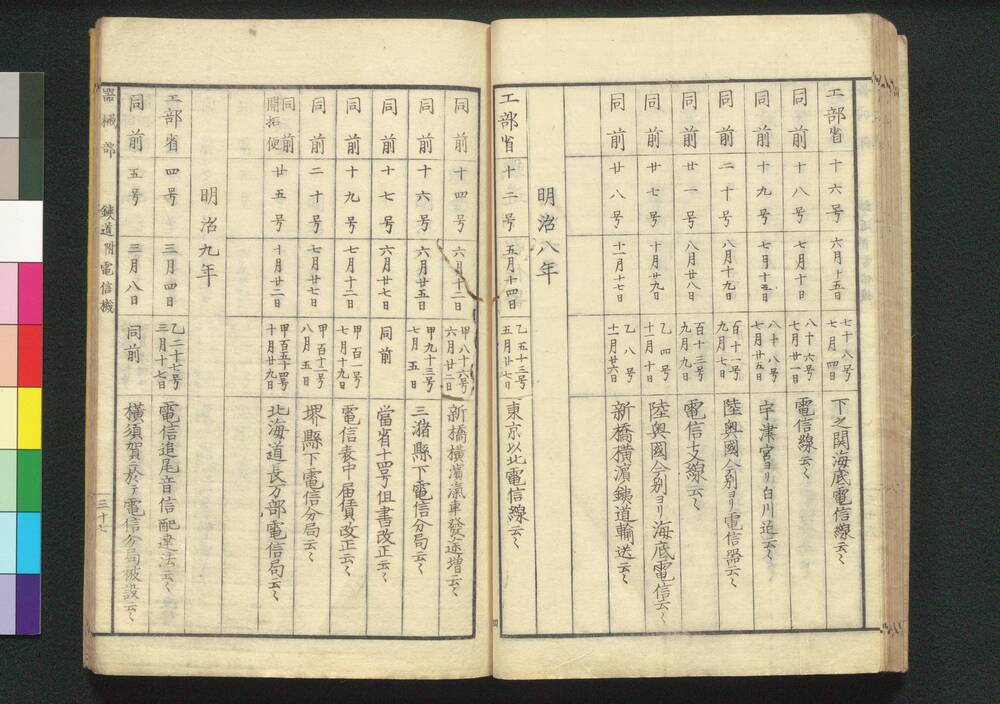 工部省 十六号 六月十五日 七十八号 七月四日 下之関海底電信線云〻
同前 十八号 七月十日 八十六号 七月廿一日 電信線云〻
同前 十九号 七月十五日 八十八号 七月廿五日 宇津宮ヨリ白川迠云〻
同前 二十号 八月十九日 百十一号 九月七日 陸奥國今別ヨリ電信器云〻
同前 廿一号 八月廿八日 百十三号 九月九日 電信支線云〻
同前 廿七号 十月廿九日 乙四号 十一月十日 陸奥國今別ヨリ海底電信云〻
同前 廿八号 十一月十七日 乙八号 十一月廿六日 新橋横濵鉄道輸送云〻
明治八年
工部省 十二号 五月十四日 乙五十三号 五月廿七日 東京以北電信線云〻
同前 十四号 六月十二日 甲八十六号 六月廿二日 新橋横濵滊車發途増云〻
同前 十六号 六月廿五日 甲九十三号 七月五日 三潴縣下電信分局云〻
同前 十七号 六月廿七日 同前 當省十四号但書改正云〻
同前 十九号 七月十二日 甲百一号 七月十九日 電信表中届賃改正云〻
同前 二十号 七月廿七日 甲百十二号 八月五日 堺縣下電信分局云〻
同前 開拓使 廿五号 十月廿二日 甲百五十四号 十月廿九日 北海道長万部電信局云〻
明治九年
工部省 四号 三月四日 乙二十七号 三月十七日 電信追尾音信配達法云〻
同前 五号 三月八日 同前 横須賀ニ於テ電信分局被設云〻
器械部 鉄道附電信機 三十七